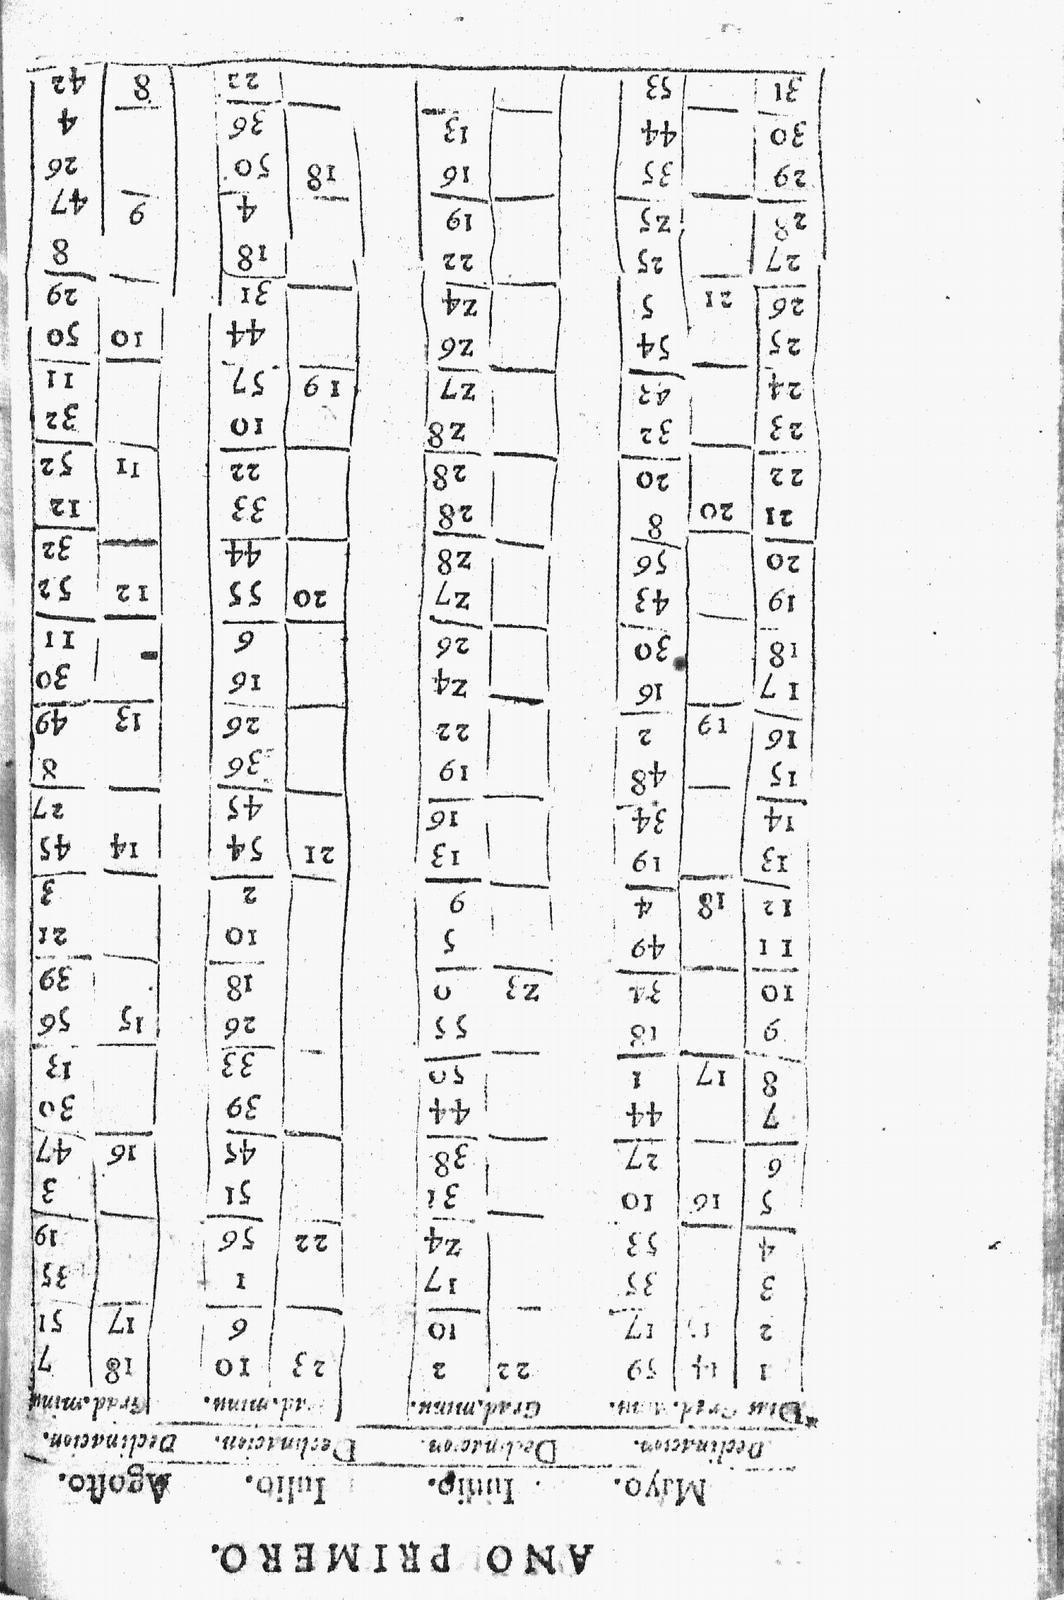 ANO PRIMERO.
Mayo. Iunio. Iulio. Agosto.
Declinacion. Declinacion. Declinacion. Declinacion.
Dias Grad.minu. Grad.minu. Grad.minu. Grad.minu
1 14 59 22 2 23 10 18 7
2 15 17 10 6 17 51
3 35 17 1 35
4 53 24 22 56 19
5 16 10 31 51 3
6 27 38 45 16 47
7 44 44 39 30
8 17 1 50 33 13
9 18 55 26 15 56
10 34 23 0 18 39
11 49 5 10 21
12 18 4 9 2 3
13 19 13 21 54 14 45
14 34 16 45 27
15 48 19 36 8
16 19 2 22 26 13 49
17 16 24 16 30
18 30 26 6 11
19 43 27 20 55 12 52
20 56 28 44 32
21 20 8 28 33 12
22 20 28 22 11 52
23 32 28 10 32
24 42 27 19 57 11
25 54 26 44 10 50
26 21 5 24 31 29
27 25 22 18 8
28 25 19 4 9 47
29 35 16 18 50 26
30 44 13 36 4
31 53 22 8 42